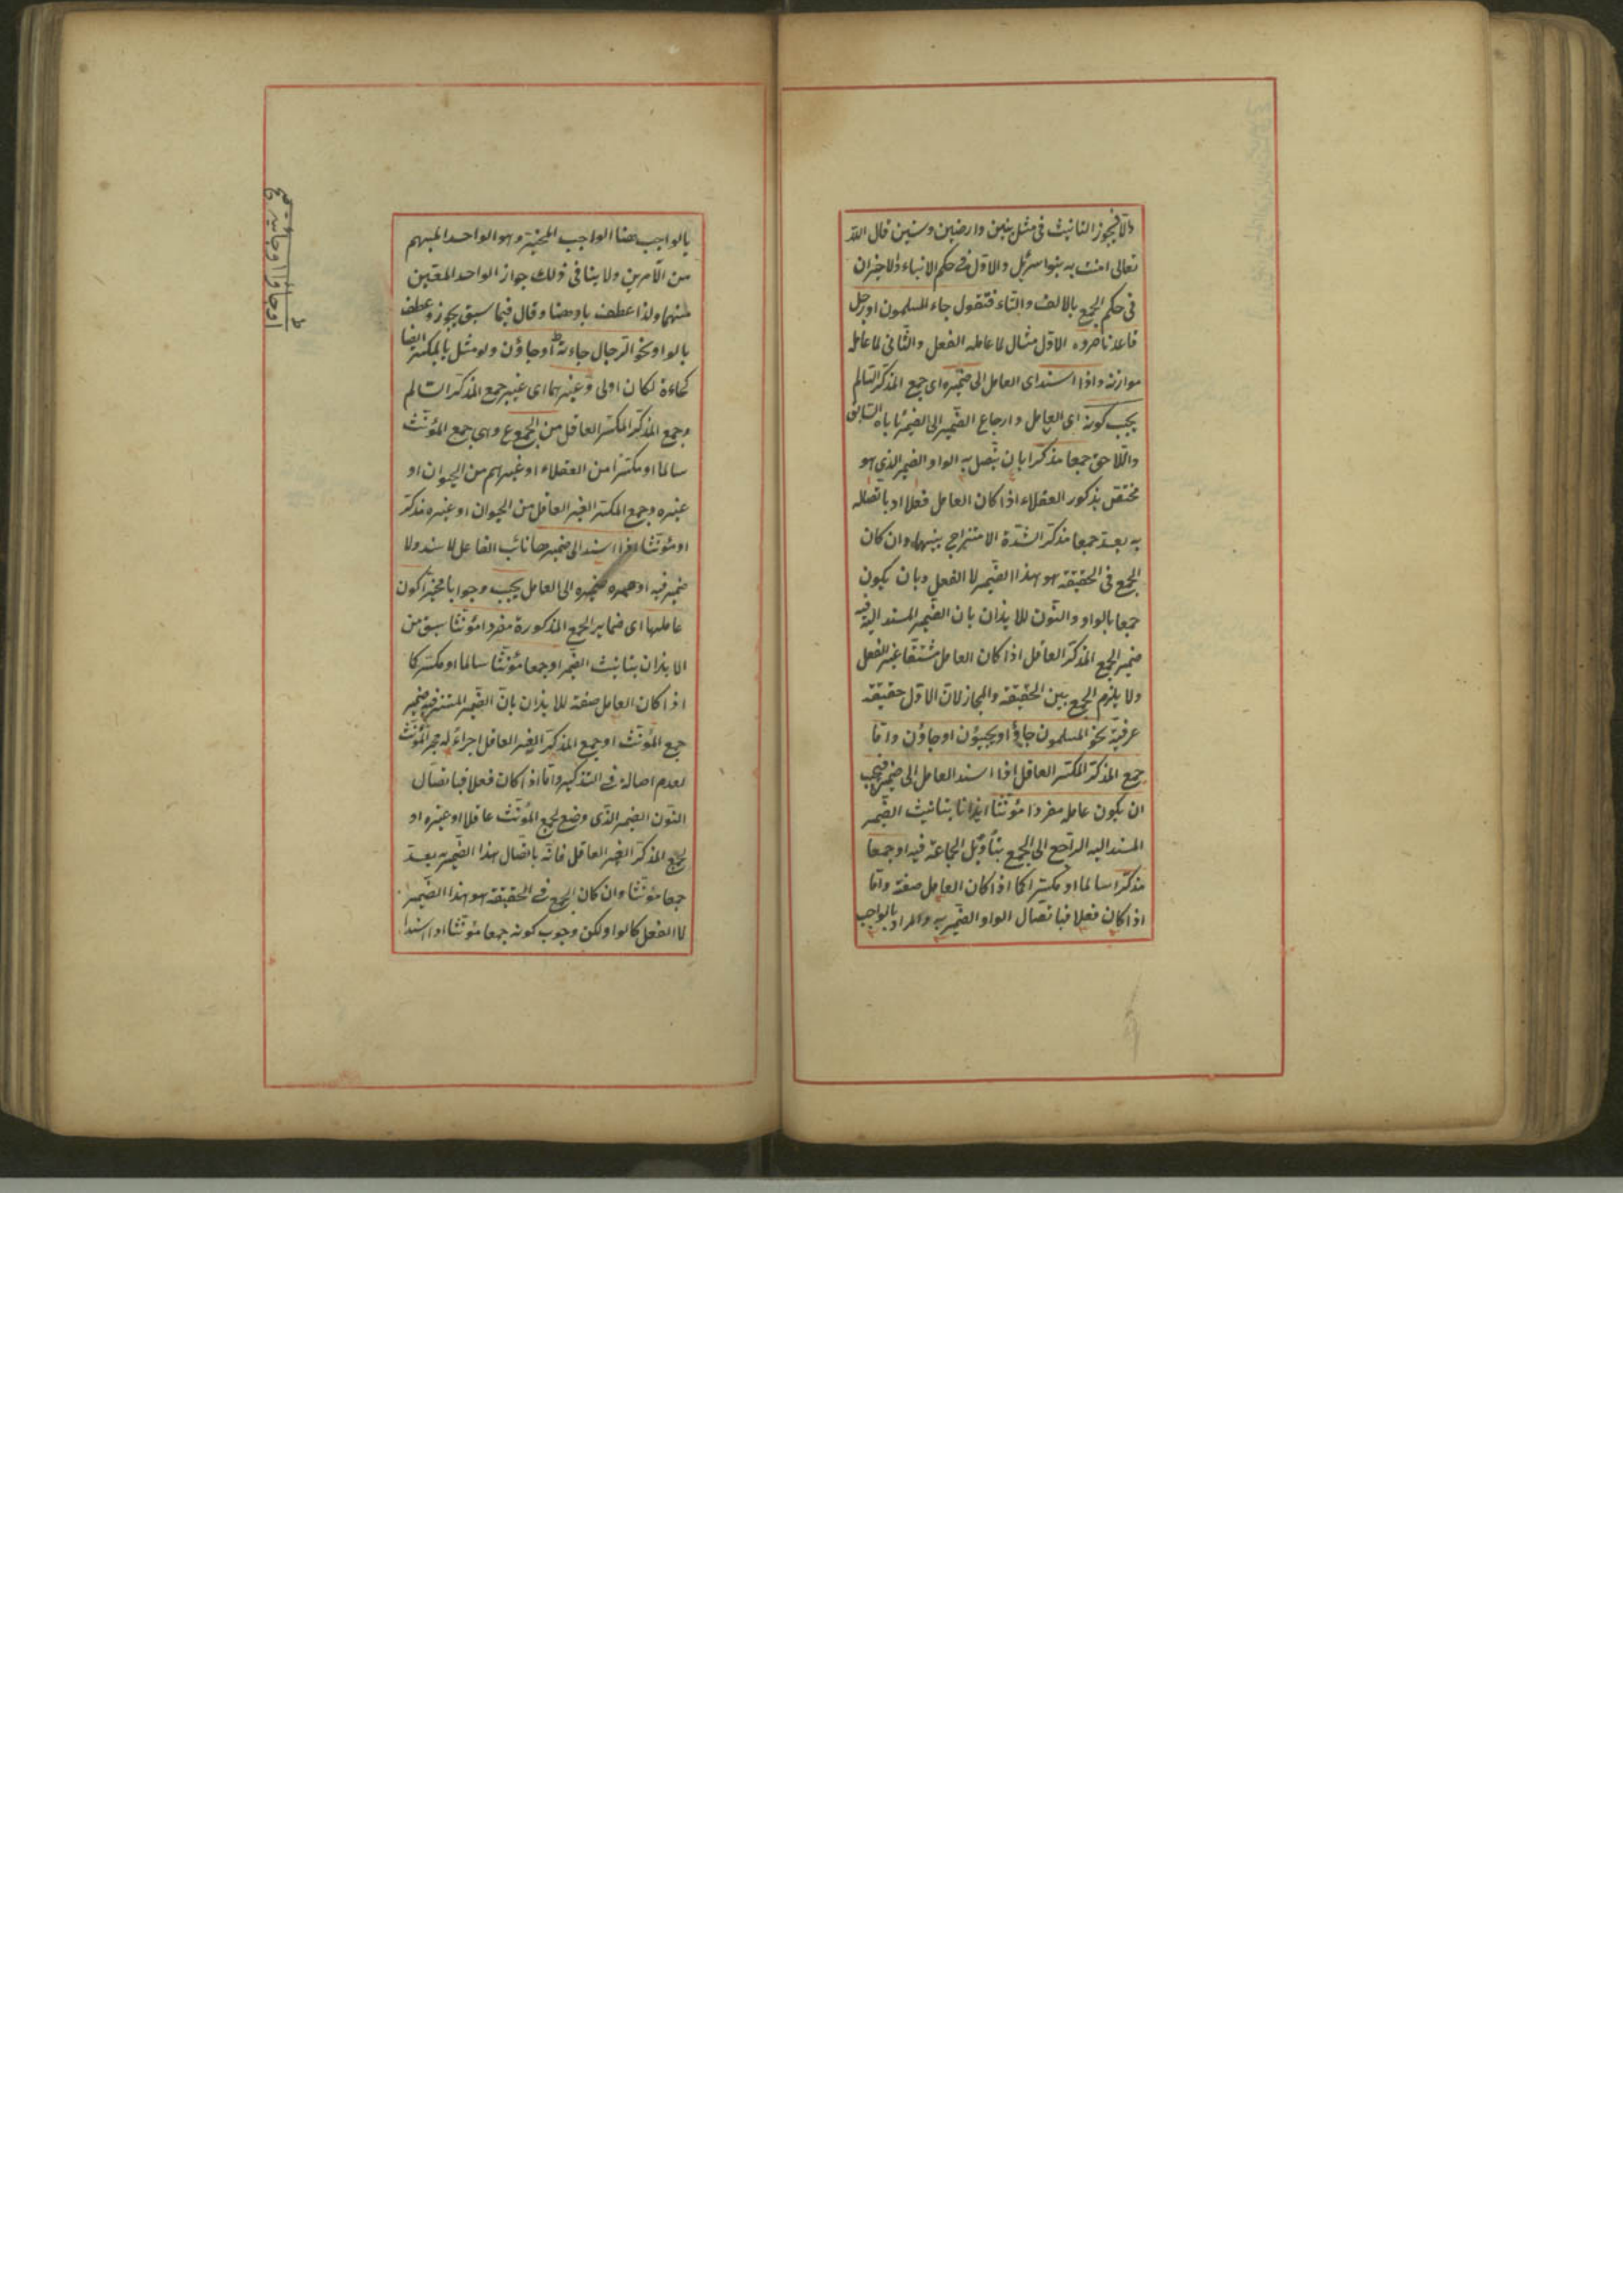 والا فيجوز التانيث فى مثل بنين وارضين وسنين قال الله
تعالى امنت به بنوا اسرئيل والاول فى حكم الابناء والاخيران
فى حكم الجمع بالالف والتاء فتقول جاء المسلمون او رجل
قاعد ناصروه الاول مثال لما عامله الفعل والثانى لما عامله
موازنه واذا اسند اى العامل الى ضميره اى جمع المذكر السالم
يجب كونه اى العامل وارجاع الضمير الى الضمير ياباه السابق
واللاحق جمعا مذكرا بان يتصل به الواو الضمير الذى هو
مختص بذكور العقلاء اذا كان العامل فعلا اذ باتصاله
به يعد جمعا مذكرا لشدة الامتزاج بينهما وان كان
الجمع فى الحقيقة هو هذا الضمير لا الفعل وبان يكون
جمعا بالواو والنون للايذان بان الضمير المسند اليه فيه
ضمير الجمع المذكر العاقل اذا كان العامل مشتقا غير الفعل
ولا يلزم الجمع بين الحقيقة والمجاز لان الاول حقيقة
عرفية نحو المسلمون جاؤا او يجيئون او جاؤن واما
جمع المذكر المكسر العاقل اذا اسند العامل الى ضميره فيجب
ان يكون عامله مفردا مؤنثا ايذانا بتانيث الضمير
المسند اليه الراجع الى الجمع بتأويل الجماعة فيه او جمعا
مذكرا سالما او مكسرا كما اذا كان العامل صفة واما
اذا كان فعلا فباتصال الواو الضمير به والمراد بالواجب
بالواجب هنا الواجب المخير وهو الواحد المبهم
من الامرين ولا ينافى ذلك جواز الواحد المعين
منهما ولذا عطف باو هنا وقال فيما سبق يجوز وعطف
بالواو نحو الرجال جاءت او جاؤن ولو مثل بالمكسر ايضا
كجاءة لكان اولى وغيرهما اى غير جمع المذكر السالم
وجمع المذكر المكسر العاقل من الجموع وهى جمع المؤنث
سالما او مكسرا من العقلاء او غيرهم من الحيوان او
غيره وجمع المكسر الغير العاقل من الحيوان او غيره مذكر
او مؤنثا اذا اسند الى ضميرها نائب الفاعل لاسند ولا
ضمير فيه او ضميره الى العامل يجب وجوبا مخيرا كون
عاملها اى ضماير الجمع المذكورة مفردا مؤنثا سبق من
الايذان بتانيث الضمير او جمعا مؤنثا سالما او مكسر كا
اذا كان العامل صفة للايذان بان الضمير المستتر فيه ضمير
جمع المؤنث او جمع المذكر الغير العاقل اجراء له مجر المؤنث
لعدم اصالة فى التذكير واما اذا كان فعلا فباتصال
النون الضمير الذى وضع لجمع المؤنث عاقلا او غيره او
لجمع المذكر الغير العاقل فانه باتصال هذا الضمير به يعد
جمعا مؤنثا وان كان الجمع فى الحقيقة هو هذا الضمير
لا الفعل كالواو لكن وجوب كونه جمعا مؤنثا اذا اسند
او جاؤا او جائية